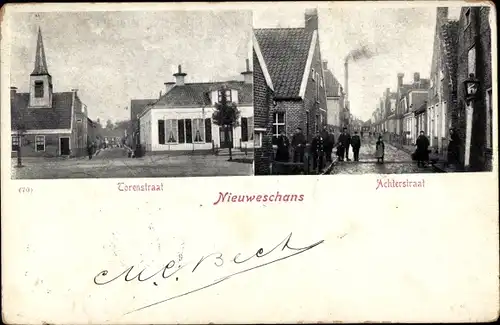 (70) Torenstraat Achterstraat
Nieuweschans
M. C. Bech